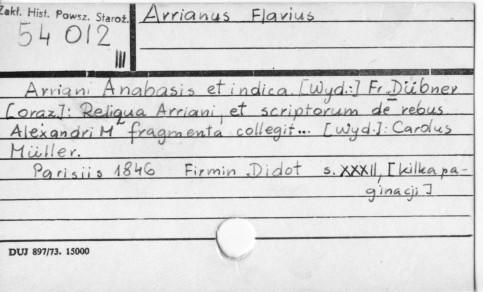 Zakł. Hist. Powsz. Staroż.
54 012
III
Arrianus Flavius
Arriani Anabasis et indica. [Wyd.:] Fr. Dübner
[oraz]: Reliqua Arriani, et scriptorum de rebus
Alexandri M fragmenta collegit... [Wyd.]: Carolus
Müller.
Parisiis 1846 Firmin Didot s. XXXII, [kilka pa-
ginacji]
DUJ 897/73. 15000